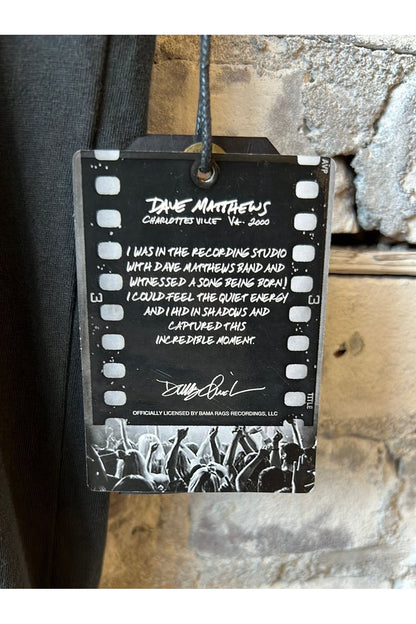 DAVE MATTHEWS
CHARLOTTESVILLE VA. 2000
I WAS IN THE RECORDING STUDIO
WITH DAVE MATTHEWS BAND AND
WITNESSED A SONG BEING BORN!
I COULD FEEL THE QUIET ENERGY
AND I HID IN SHADOWS AND
CAPTURED THIS
INCREDIBLE MOMENT.
OFFICIALLY LICENSED BY BAMA RAGS RECORDINGS, LLC
AVP
3
3
TITLE